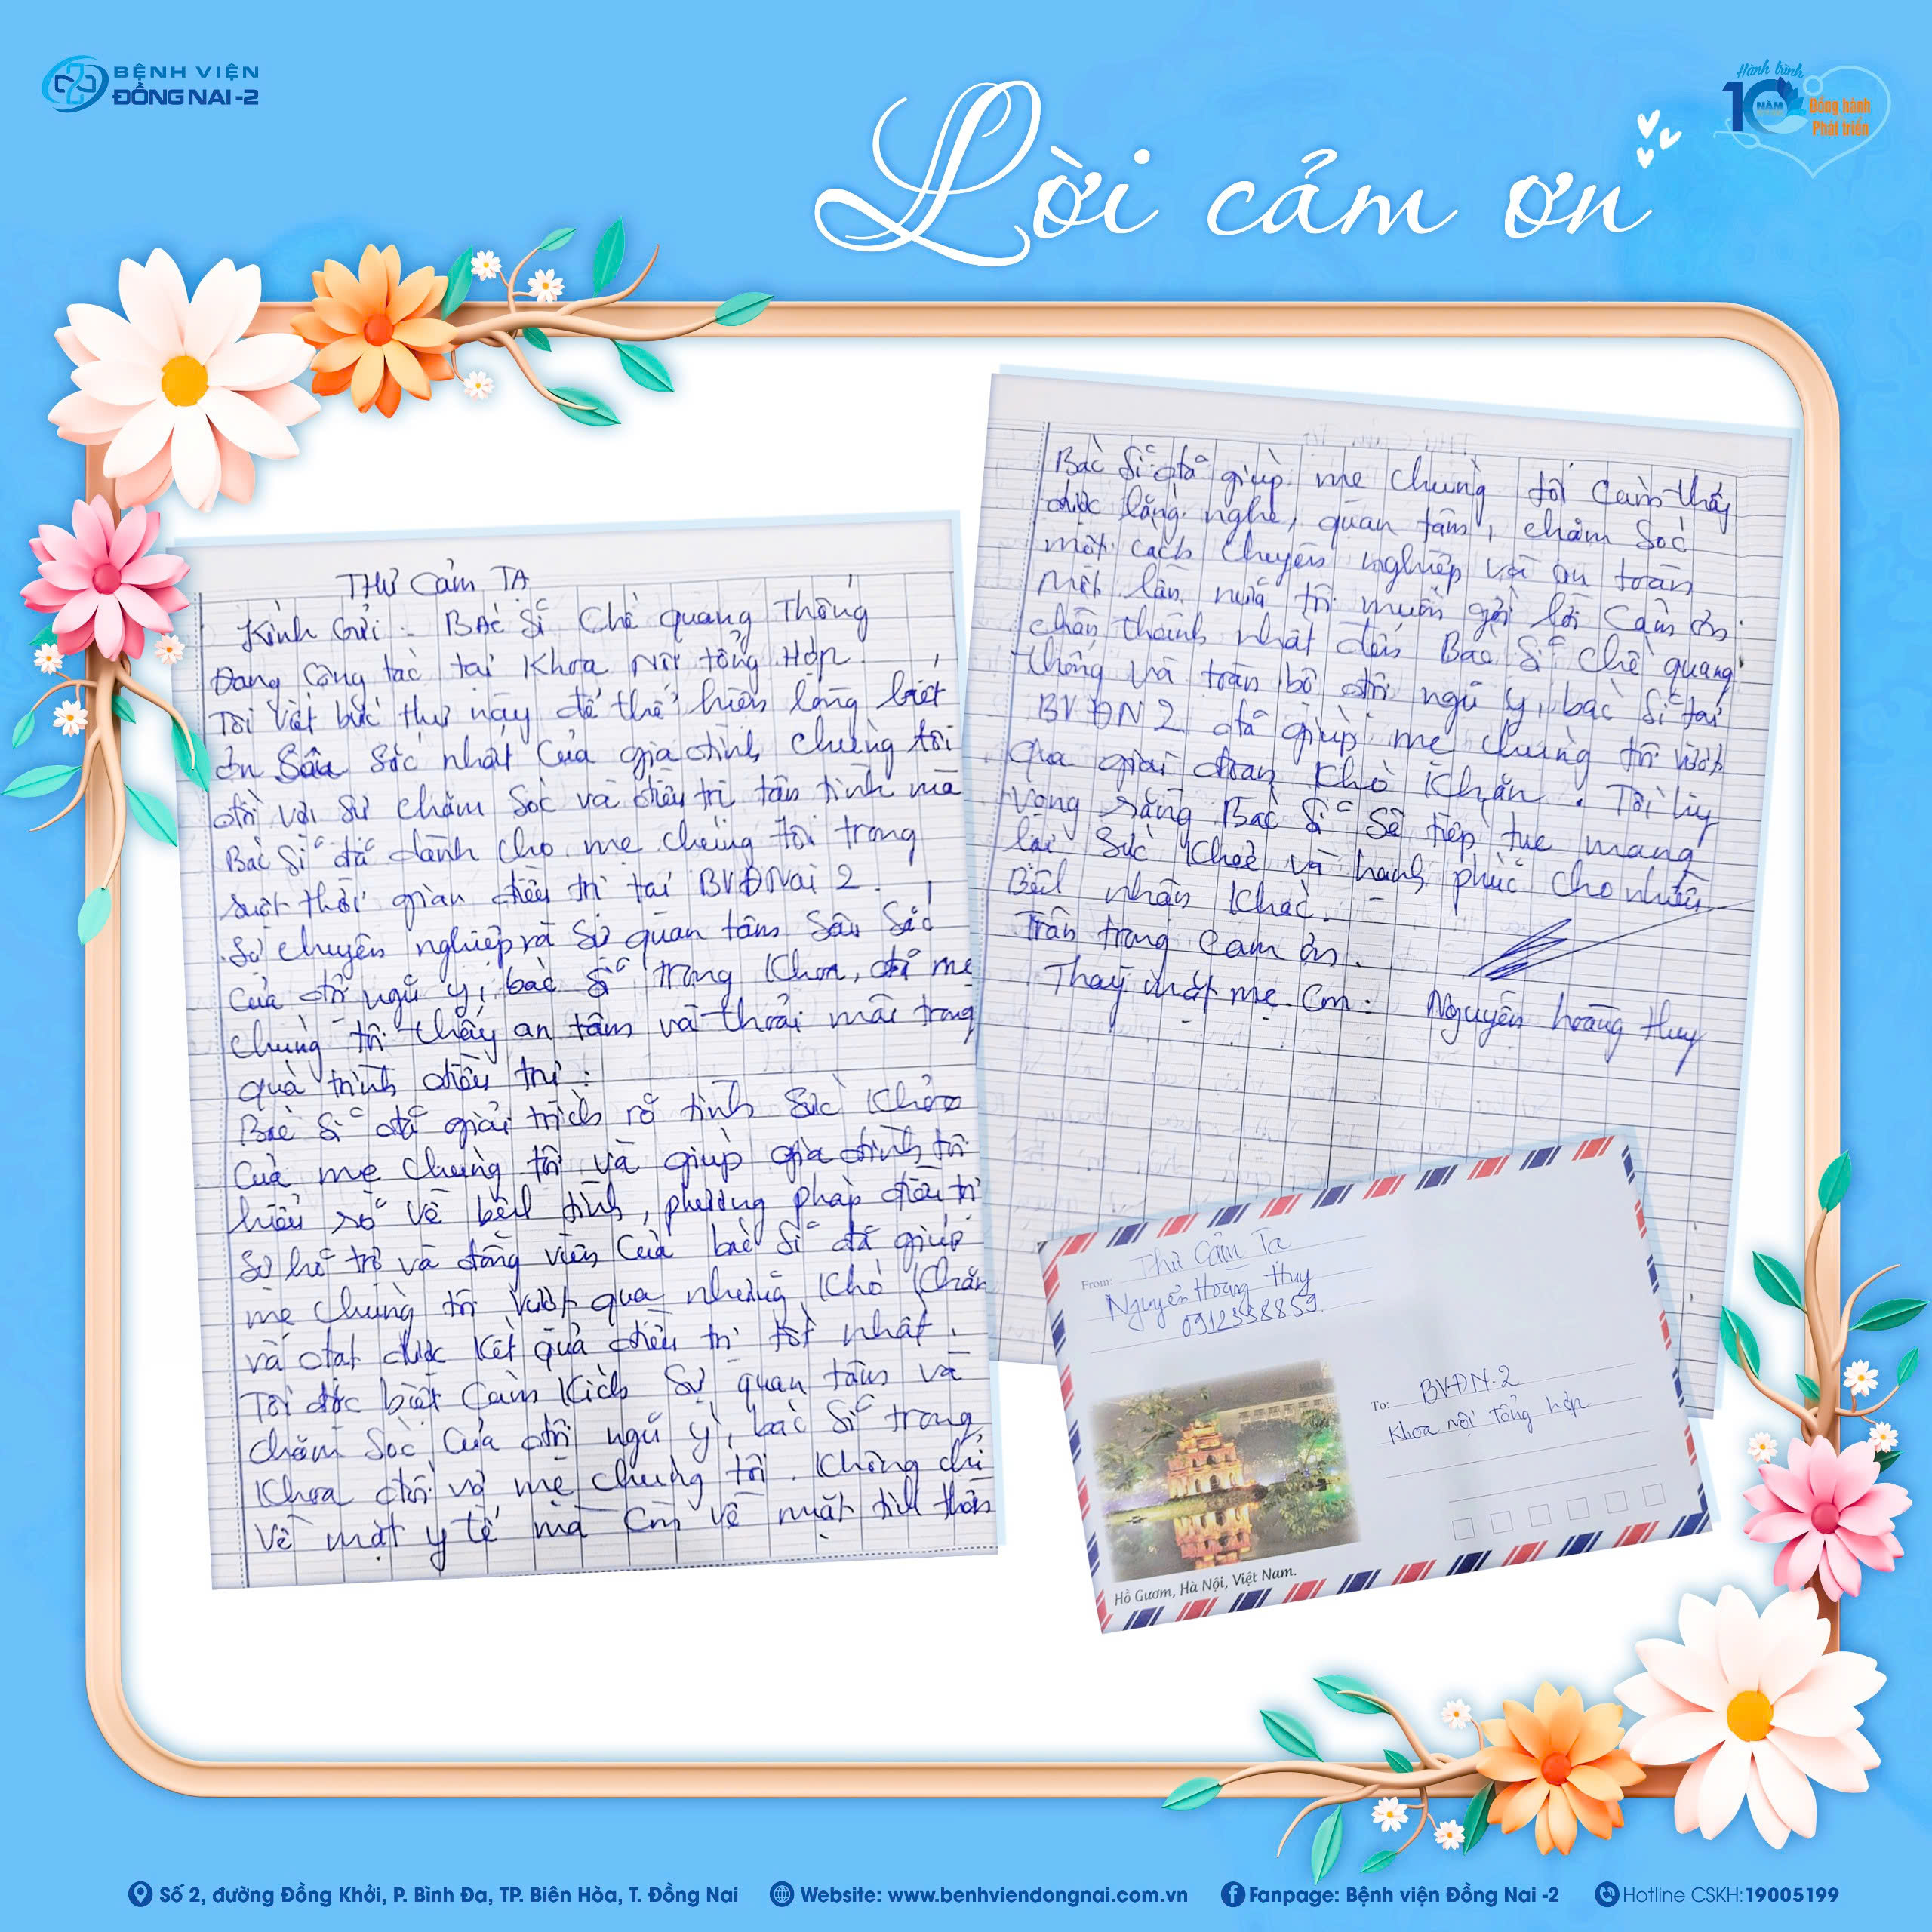 BỆNH VIỆN
ĐỒNG NAI -2
Hành trình
10 NĂM
Đồng hành
Phát triển
Lời cảm ơn
THƯ Cảm TẠ
Kính Gửi : BÁC Sĩ Chế quang Thống
Đang Công tác tại Khoa Nội tổng Hợp.
Tôi viết bức thư này để thể hiện lòng biết
ơn Sâu Sắc nhất của gia đình chúng tôi
đối với sự chăm sóc và điều trị tận tình mà
Bác Sĩ đã dành cho mẹ chúng tôi trong
suốt thời gian điều trị tại BVĐNai 2.
Sự chuyên nghiệp và sự quan tâm sâu sắc
Của đội ngũ y, bác sĩ trong khoa, đã mẹ
chúng tôi thấy an tâm và thoải mái trong
quá trình điều trị.
Bác sĩ đã giải trích rõ tình sức khỏe
Của mẹ chúng tôi và giúp gia đình tôi
hiểu rõ về bệnh tình, phương pháp điều trị
Sự hỗ trợ và động viên của bác sĩ đã giúp
mẹ chúng tôi vượt qua những khó khăn
và đạt được kết quả điều trị tốt nhất.
Tôi đặc biệt cảm kích sự quan tâm và
chăm sóc của đội ngũ y, bác sĩ trong
khoa đối với mẹ chúng tôi. Không chỉ
về mặt y tế mà còn về mặt tinh thần
Bác sĩ đã giúp mẹ chúng tôi cảm thấy
được lắng nghe, quan tâm, chăm sóc
một cách chuyên nghiệp và an toàn
Một lần nữa tôi muốn gửi lời cảm ơn
chân thành nhất đến Bác Sĩ Chế quang
Thống và toàn bộ đội ngũ y, bác sĩ tại
BVĐN2 đã giúp mẹ chúng tôi vượt
qua giai đoạn khó khăn. Tôi hy
vọng rằng Bác Sĩ sẽ tiếp tục mang
lại sức khoẻ và hạnh phúc cho nhiều
Bệnh nhân khác.
Trân trọng cảm ơn.
Thay mặt mẹ. Con: Nguyễn hoàng Huy
From: Thư Cảm Tạ
Nguyễn Hoàng Huy
To: BVĐN-2
Khoa nội tổng hợp
Hồ Gươm, Hà Nội, Việt Nam.
Số 2, đường Đồng Khởi, P. Bình Đa, TP. Biên Hòa, T. Đồng Nai
Website: www.benhviendongnai.com.vn
Fanpage: Bệnh viện Đồng Nai -2
Hotline CSKH: 19005199